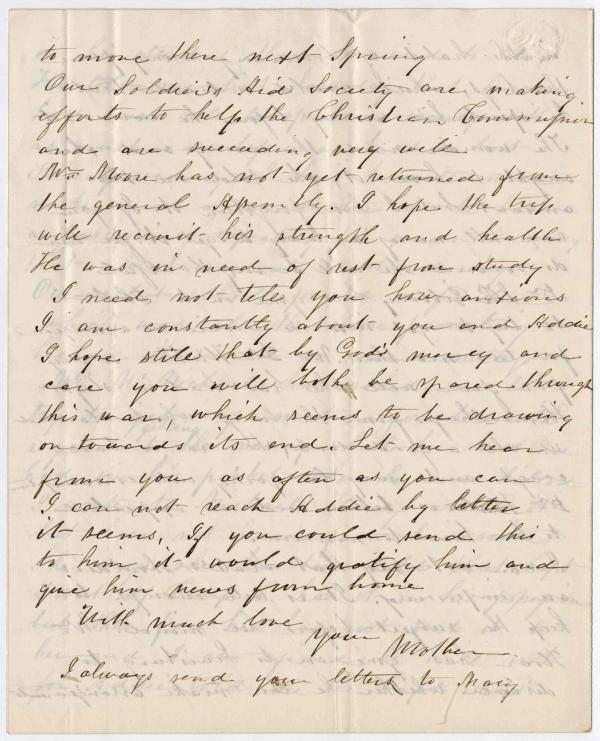 to move there next Spring
Our Soldier's Aid Society are making
efforts to help the Christian Commission
and are succeeding very well
Mr Moore has not yet returned from
the general Assembly. I hope the trip
will recruit his strength and health
He was in need of rest from study
I need not tell you how anxious
I am constantly about you and Addie
I hope still that by God's mercy and
care you will both be spared through
this war, which seems to be drawing
on towards its end. Let me hear
from you as often as you can
I can not reach Addie by letter
it seems, If you could send this
to him it would gratify him and
give him news from home
With much love
your Mother
I always send your letters to Mary